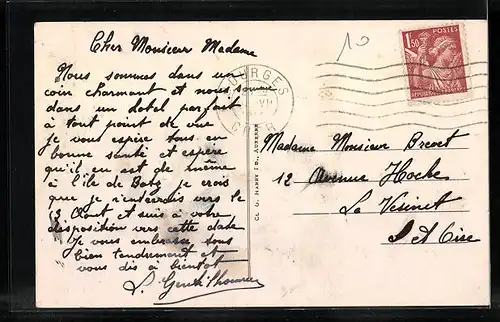 Cher Monsieur Madame
Nous sommes dans un
coin charmant et nous sommes
dans un hotel parfait
à tout point de vue
je vous espère tous en
bonne santé et espère
qu'il en est de même
à l'ile de Batz je crois
que je rentrerais vers le
13 Aout et suis à votre
disposition vers cette date
Je vous embrasse tous
bien tendrement et
vous dis à bientôt
10
BOURGES
CHER
1,50
POSTES
Madame Monsieur
12 Avenue Hoche
Le Vésinet
S et Oise